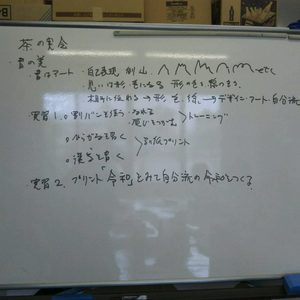 茶の実会
・書の美
・書はアート・自己表現 創山
・思いは形、色になる 形のもつ、線のもつ
相手に伝わる → 形、色、線、→ デザイン、アート、自分流
・実習1. ○割りバンを使う・なれる
・感じをつかむ
トレーニング
○ひらがなを書く
○漢字を書く
別紙プリント
・実習2. プリント「令和」をみて自分流の令和をつくる